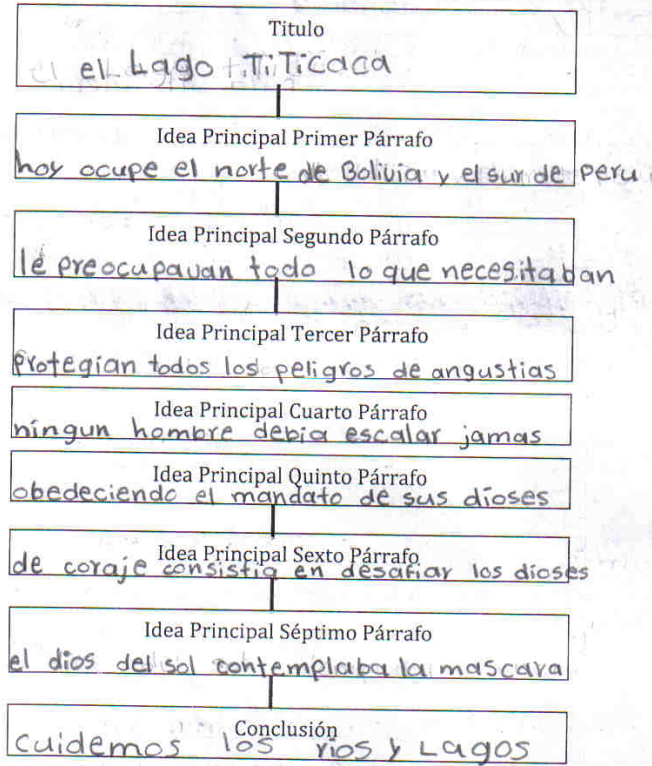 Titulo
el Lago TiTicaca
Idea Principal Primer Párrafo
hoy ocupe el norte de Bolivia y el sur de Peru
Idea Principal Segundo Párrafo
le preocupavan todo lo que necesitaban
Idea Principal Tercer Párrafo
protegian todos los peligros de angustias
Idea Principal Cuarto Párrafo
ningun hombre debia escalar jamas
Idea Principal Quinto Párrafo
obedeciendo el mandato de sus dioses
Idea Principal Sexto Párrafo
de coraje consistia en desafiar los dioses
Idea Principal Séptimo Párrafo
el dios del sol contemplaba la mascara
Conclusión
cuidemos los rios y Lagos